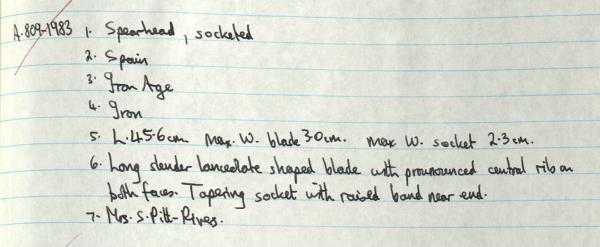 A.809-1983 1. Spearhead, socketed
2. Spain
3. Iron Age
4. Iron
5. L.45.6cm. Max. W. blade 3.0cm. max W. socket 2.3cm.
6. Long slender lanceolate shaped blade with pronounced central rib on
both faces. Tapering socket with raised band near end.
7. Mrs. S. Pitt-Rivers.